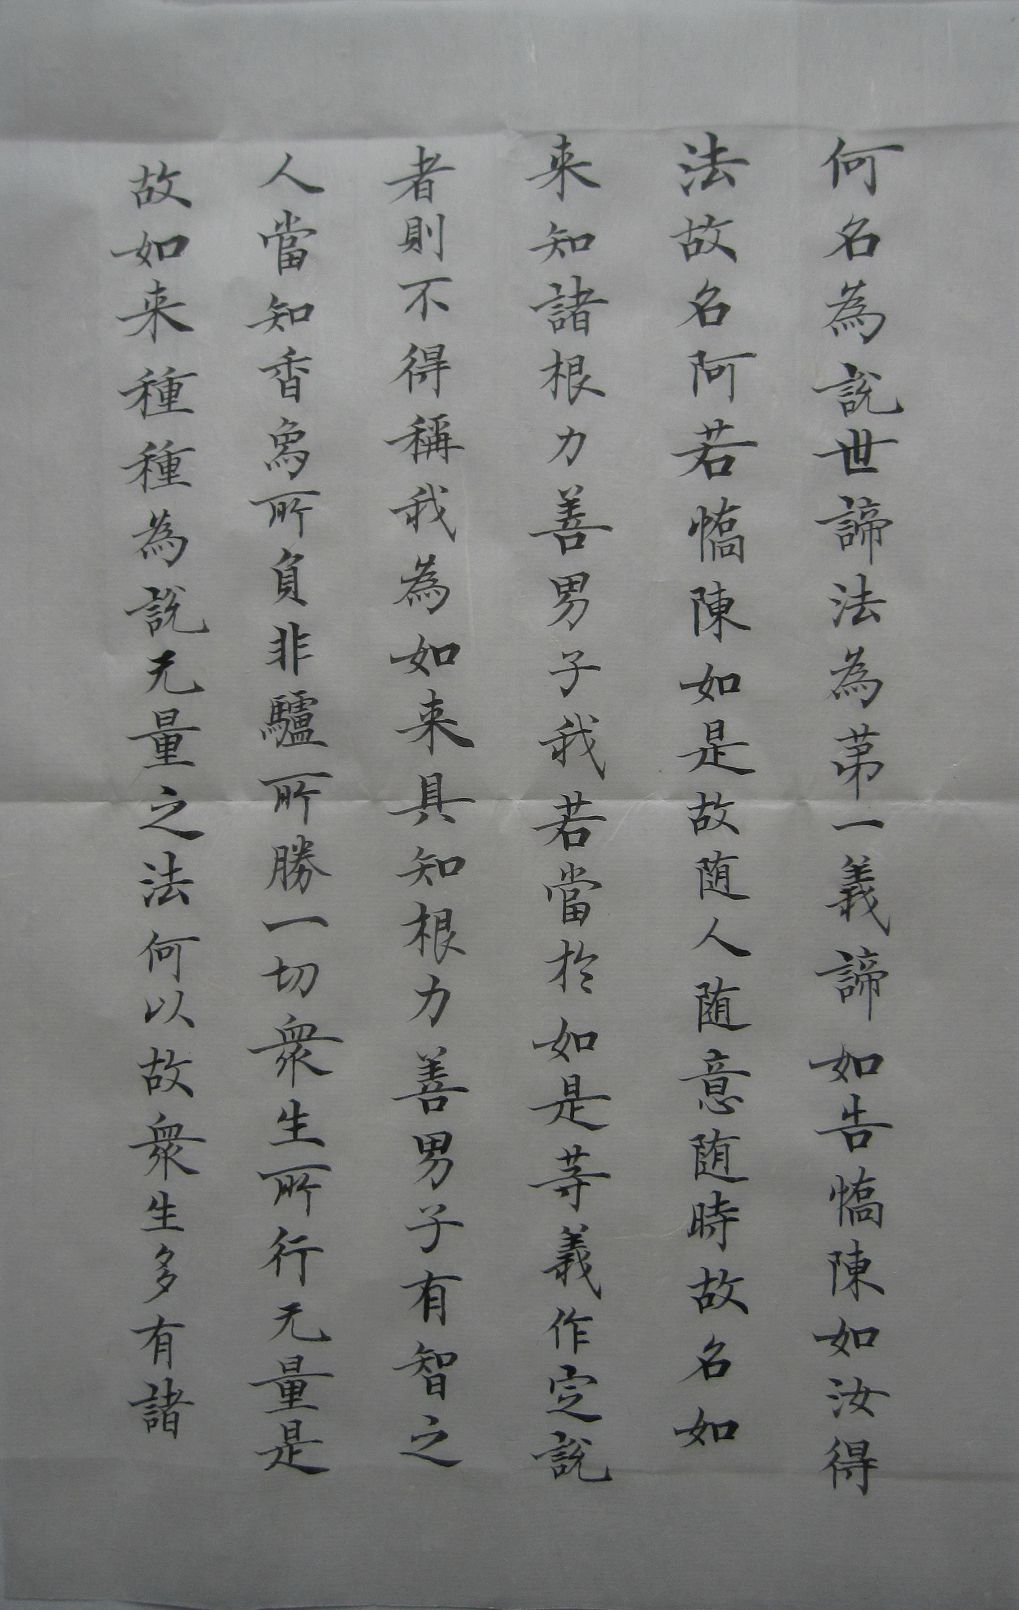 何名為説世諦法為苐一義諦如告憍陳如汝得
法故名阿若憍陳如是故随人随意随時故名如
来知諸根力善男子我若當於如是等義作定説
者則不得稱我為如来具知根力善男子有智之
人當知香象所負非驢所勝一切衆生所行无量是
故如来種種為説无量之法何以故衆生多有諸